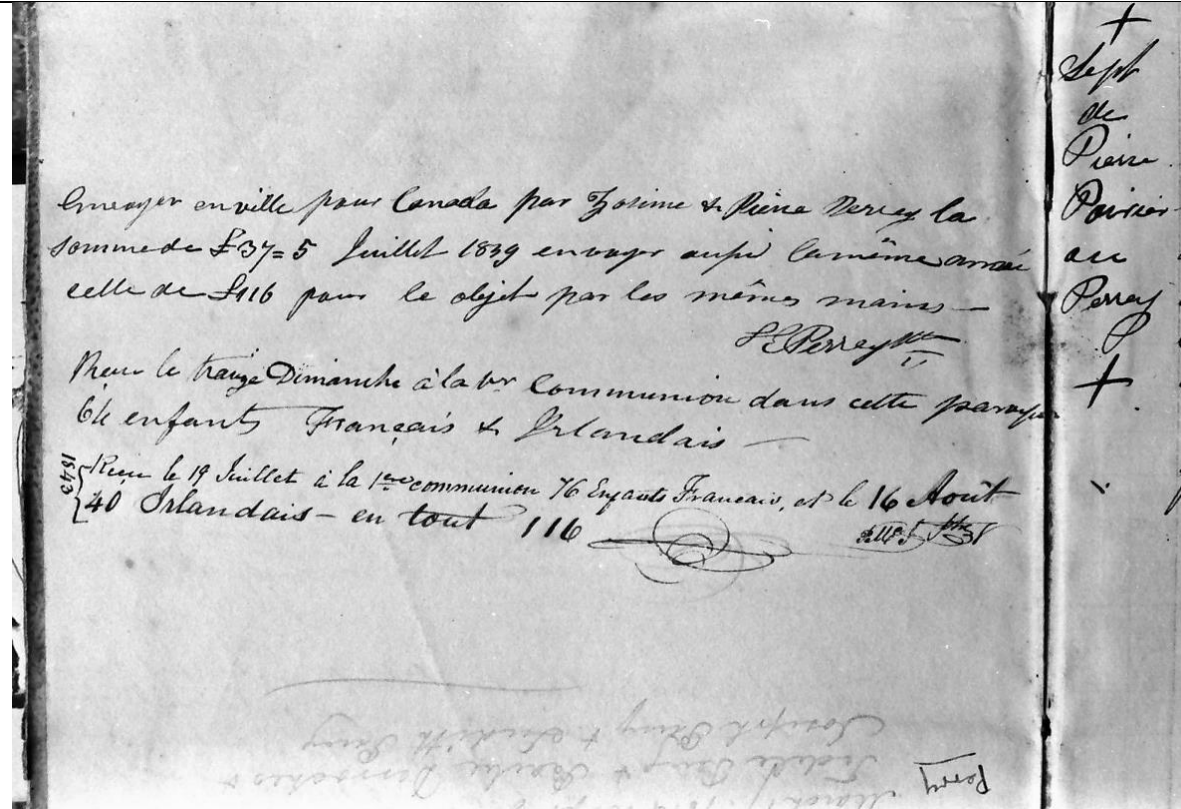 Envoyer en ville pour Canada par Zosime & Pierre Perrey la
somme de £37=5 Juillet 1839 envoyer aussi la même année
celle de £116 pour le objet par les mêmes mains —
Perrey
le Dimanche à la Communion dans cette
64 enfants Français & Irlandais —
1843
Reçu le 19 Juillet à la 1ère communion 76 Enfants Francais, et le 16 Août
40 Irlandais — en tout 116
+
Sept
de
Pierre
Poirier
ou
Perrey
P
+
Joseph Perry & Judith Perry
Perry